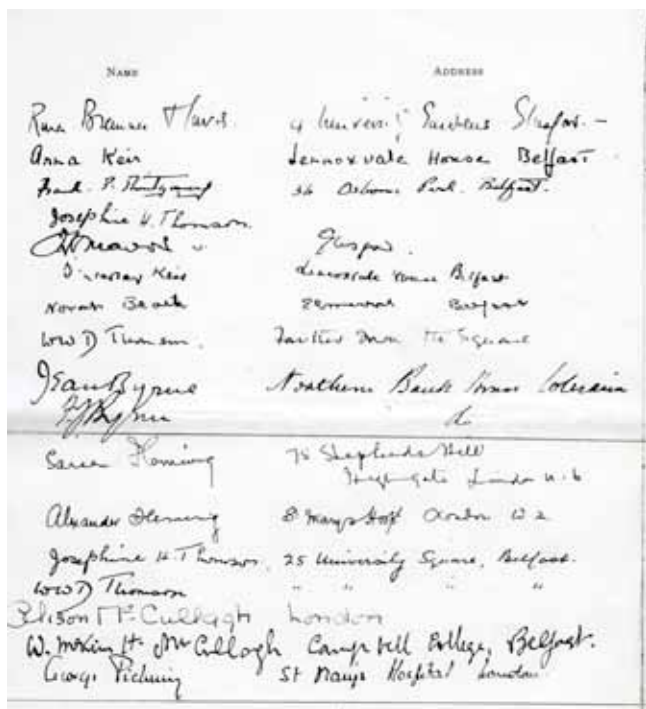 NAME ADDRESS
Rona Mavor. 4 University Gardens Glasgow. —
Anna Keir Lennoxvale House Belfast
Frank P. Montgomery 34 Osborne Park. Belfast.
Josephine H. Thomson
Glasgow.
Lindsay Keir Lennoxvale House Belfast
Norah Belfast
WWD Thomson. Further Down the Square
Jean Byrne Northern Bank House Coleraine
Byrne do
Sareen Fleming 78 Shepherds Hill
Highgate London N. 6
Alexander Fleming St Marys Hosp London W 2
Josephine H. Thomson. 25 University Square, Belfast.
WWD Thomson " " " "
Alison McCullagh London
W. McKim H. McCullagh Campbell College, Belfast.
George Pickering St Marys Hospital London.